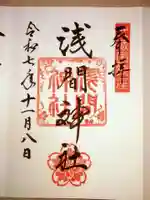 奉拝
浅間神社
令和七年十一月八日